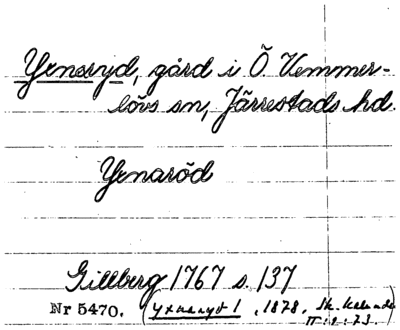 Yxnaryd, gård i Ö. Vemmer-
lövs sn, Järrestads hd.
Yxnaröd
Gillberg 1767 s. 137
Nr 5470. (yxnaryd 1, 1828, Sk. Kalender
II:2:73.)